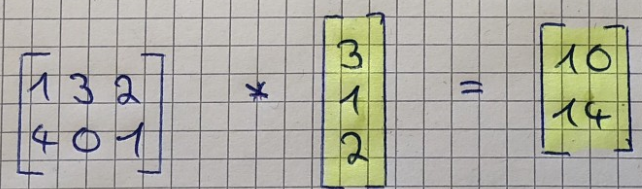 [1 3 2
4 0 1] * [3
1
2] = [10
14]